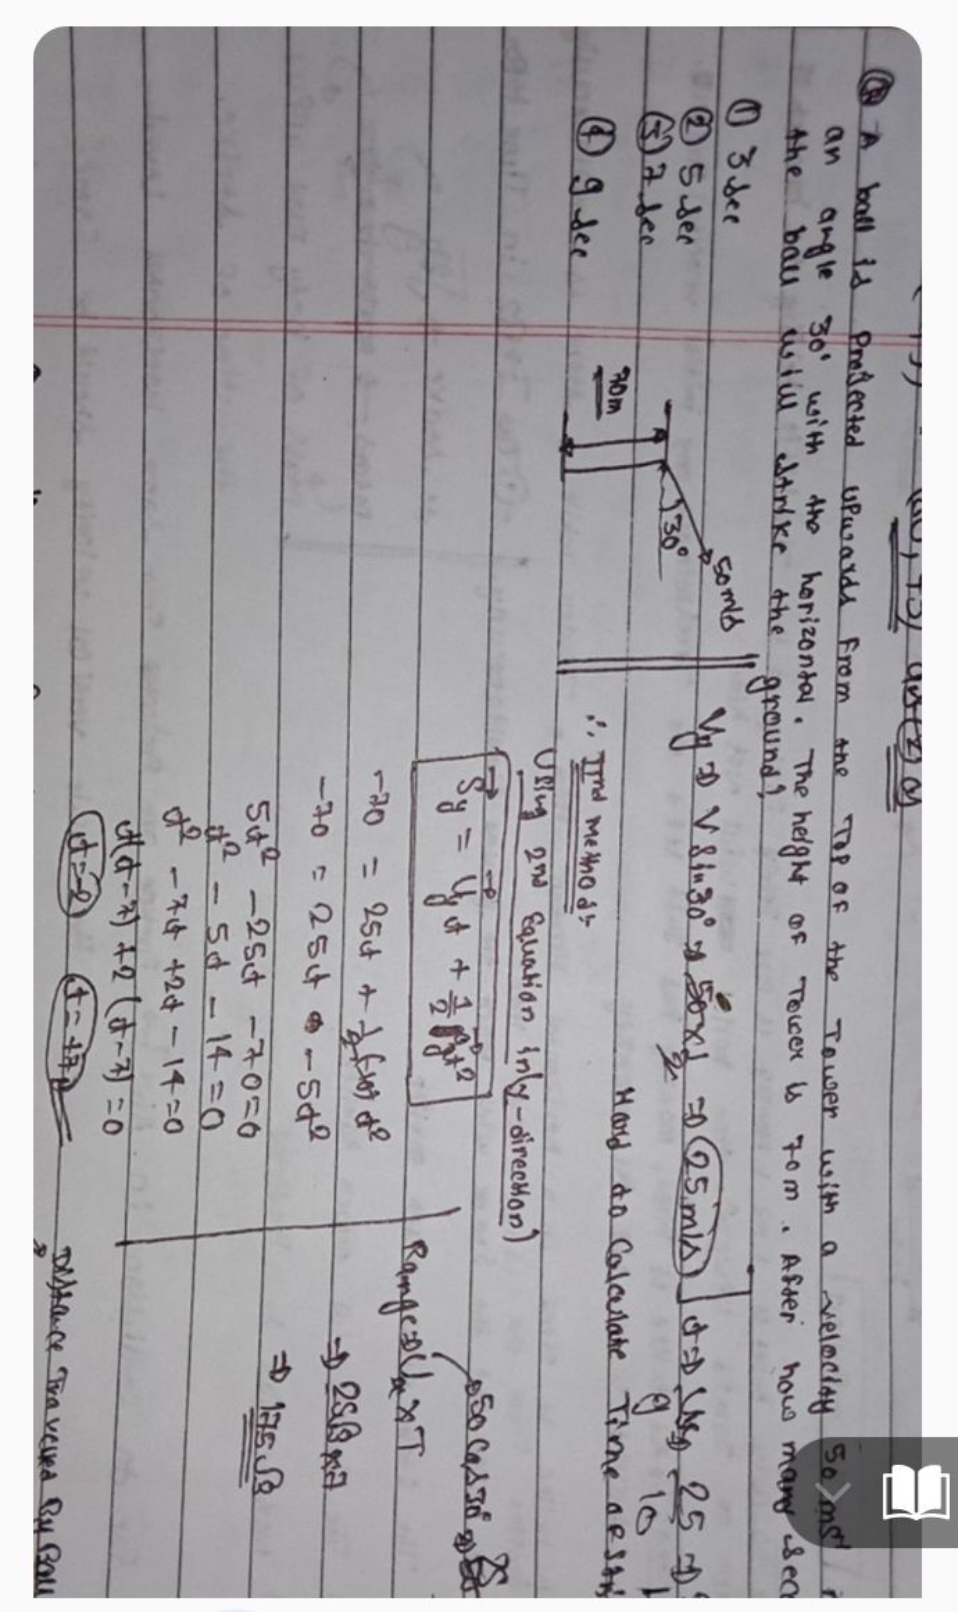 Ⓠ A ball is Projected upwards from the Top of the Tower with a velocity 50 ms⁻¹
an angle 30° with the horizontal. The height of Tower is 70m. After how many sec
the ball will strike the ground?
① 3 sec
② 5 sec
③ 7 sec
④ 9 sec
70m
30°
50m/s
Vy ⇒ V sin30° ⇒ 50×1/2 ⇒ 25 m/s
t ⇒ 25/10
Hard to Calculate Time
∴ IInd method:-
Using 2nd Equation in (y-direction)
Sy = Uyt + 1/2 gyt²
-70 = 25t + 1/2(-10)t²
-70 = 25t - 5t²
5t² - 25t - 70 = 0
t² - 5t - 14 = 0
t² - 7t + 2t - 14 = 0
t(t-7) + 2(t-7) = 0
t = -2
t = +7
50 Cos30°
Range ⇒ Ux × T
⇒ 25√3 × 7
⇒ 175√3
Distance Travelled By Ball